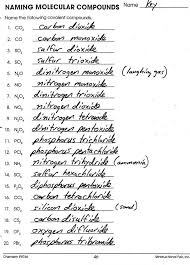 NAMING MOLECULAR COMPOUNDS Name Key
Name the following covalent compounds.
1. CO₂ carbon dioxide
2. CO carbon monoxide
3. SO₂ sulfur dioxide
4. SO₃ sulfur trioxide
5. N₂O dinitrogen monoxide (laughing gas)
6. NO nitrogen monoxide
7. N₂O₃ dinitrogen trioxide
8. NO₂ nitrogen dioxide
9. N₂O₄ dinitrogen tetroxide
10. N₂O₅ dinitrogen pentoxide
11. PCl₃ phosphorus trichloride
12. PCl₅ phosphorus pentachloride
13. NH₃ nitrogen trihydride (ammonia)
14. SCl₆ sulfur hexachloride
15. P₂O₅ diphosphorus pentoxide
16. CCl₄ carbon tetrachloride
17. SiO₂ silicon dioxide (sand)
18. CS₂ carbon disulfide
19. OF₂ oxygen difluoride
20. PBr₃ phosphorus tribromide
Chemistry IF8766